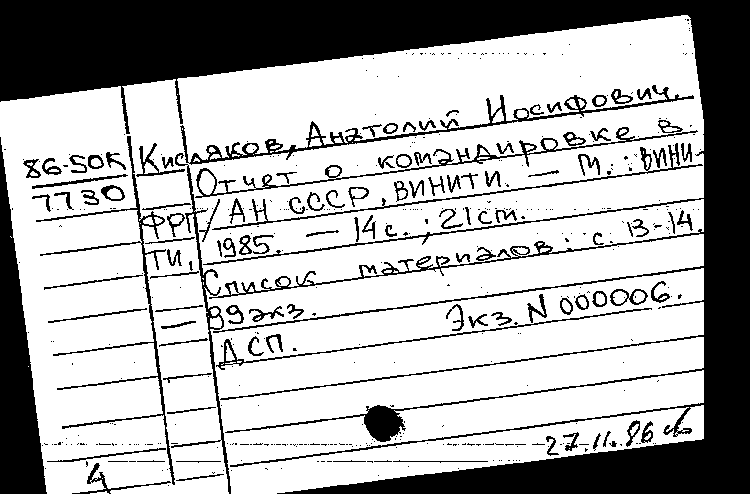 86-50К Кисляков, Анатолий Иосифович.
7730 Отчет о командировке в
ФРГ / АН СССР, ВИНИТИ. — М. : ВИНИ-
ТИ, 1985. — 14 с. ; 21 см.
Список материалов: с. 13-14.
— 99 экз.
ДСП. Экз. N 000006.
27.11.86
4